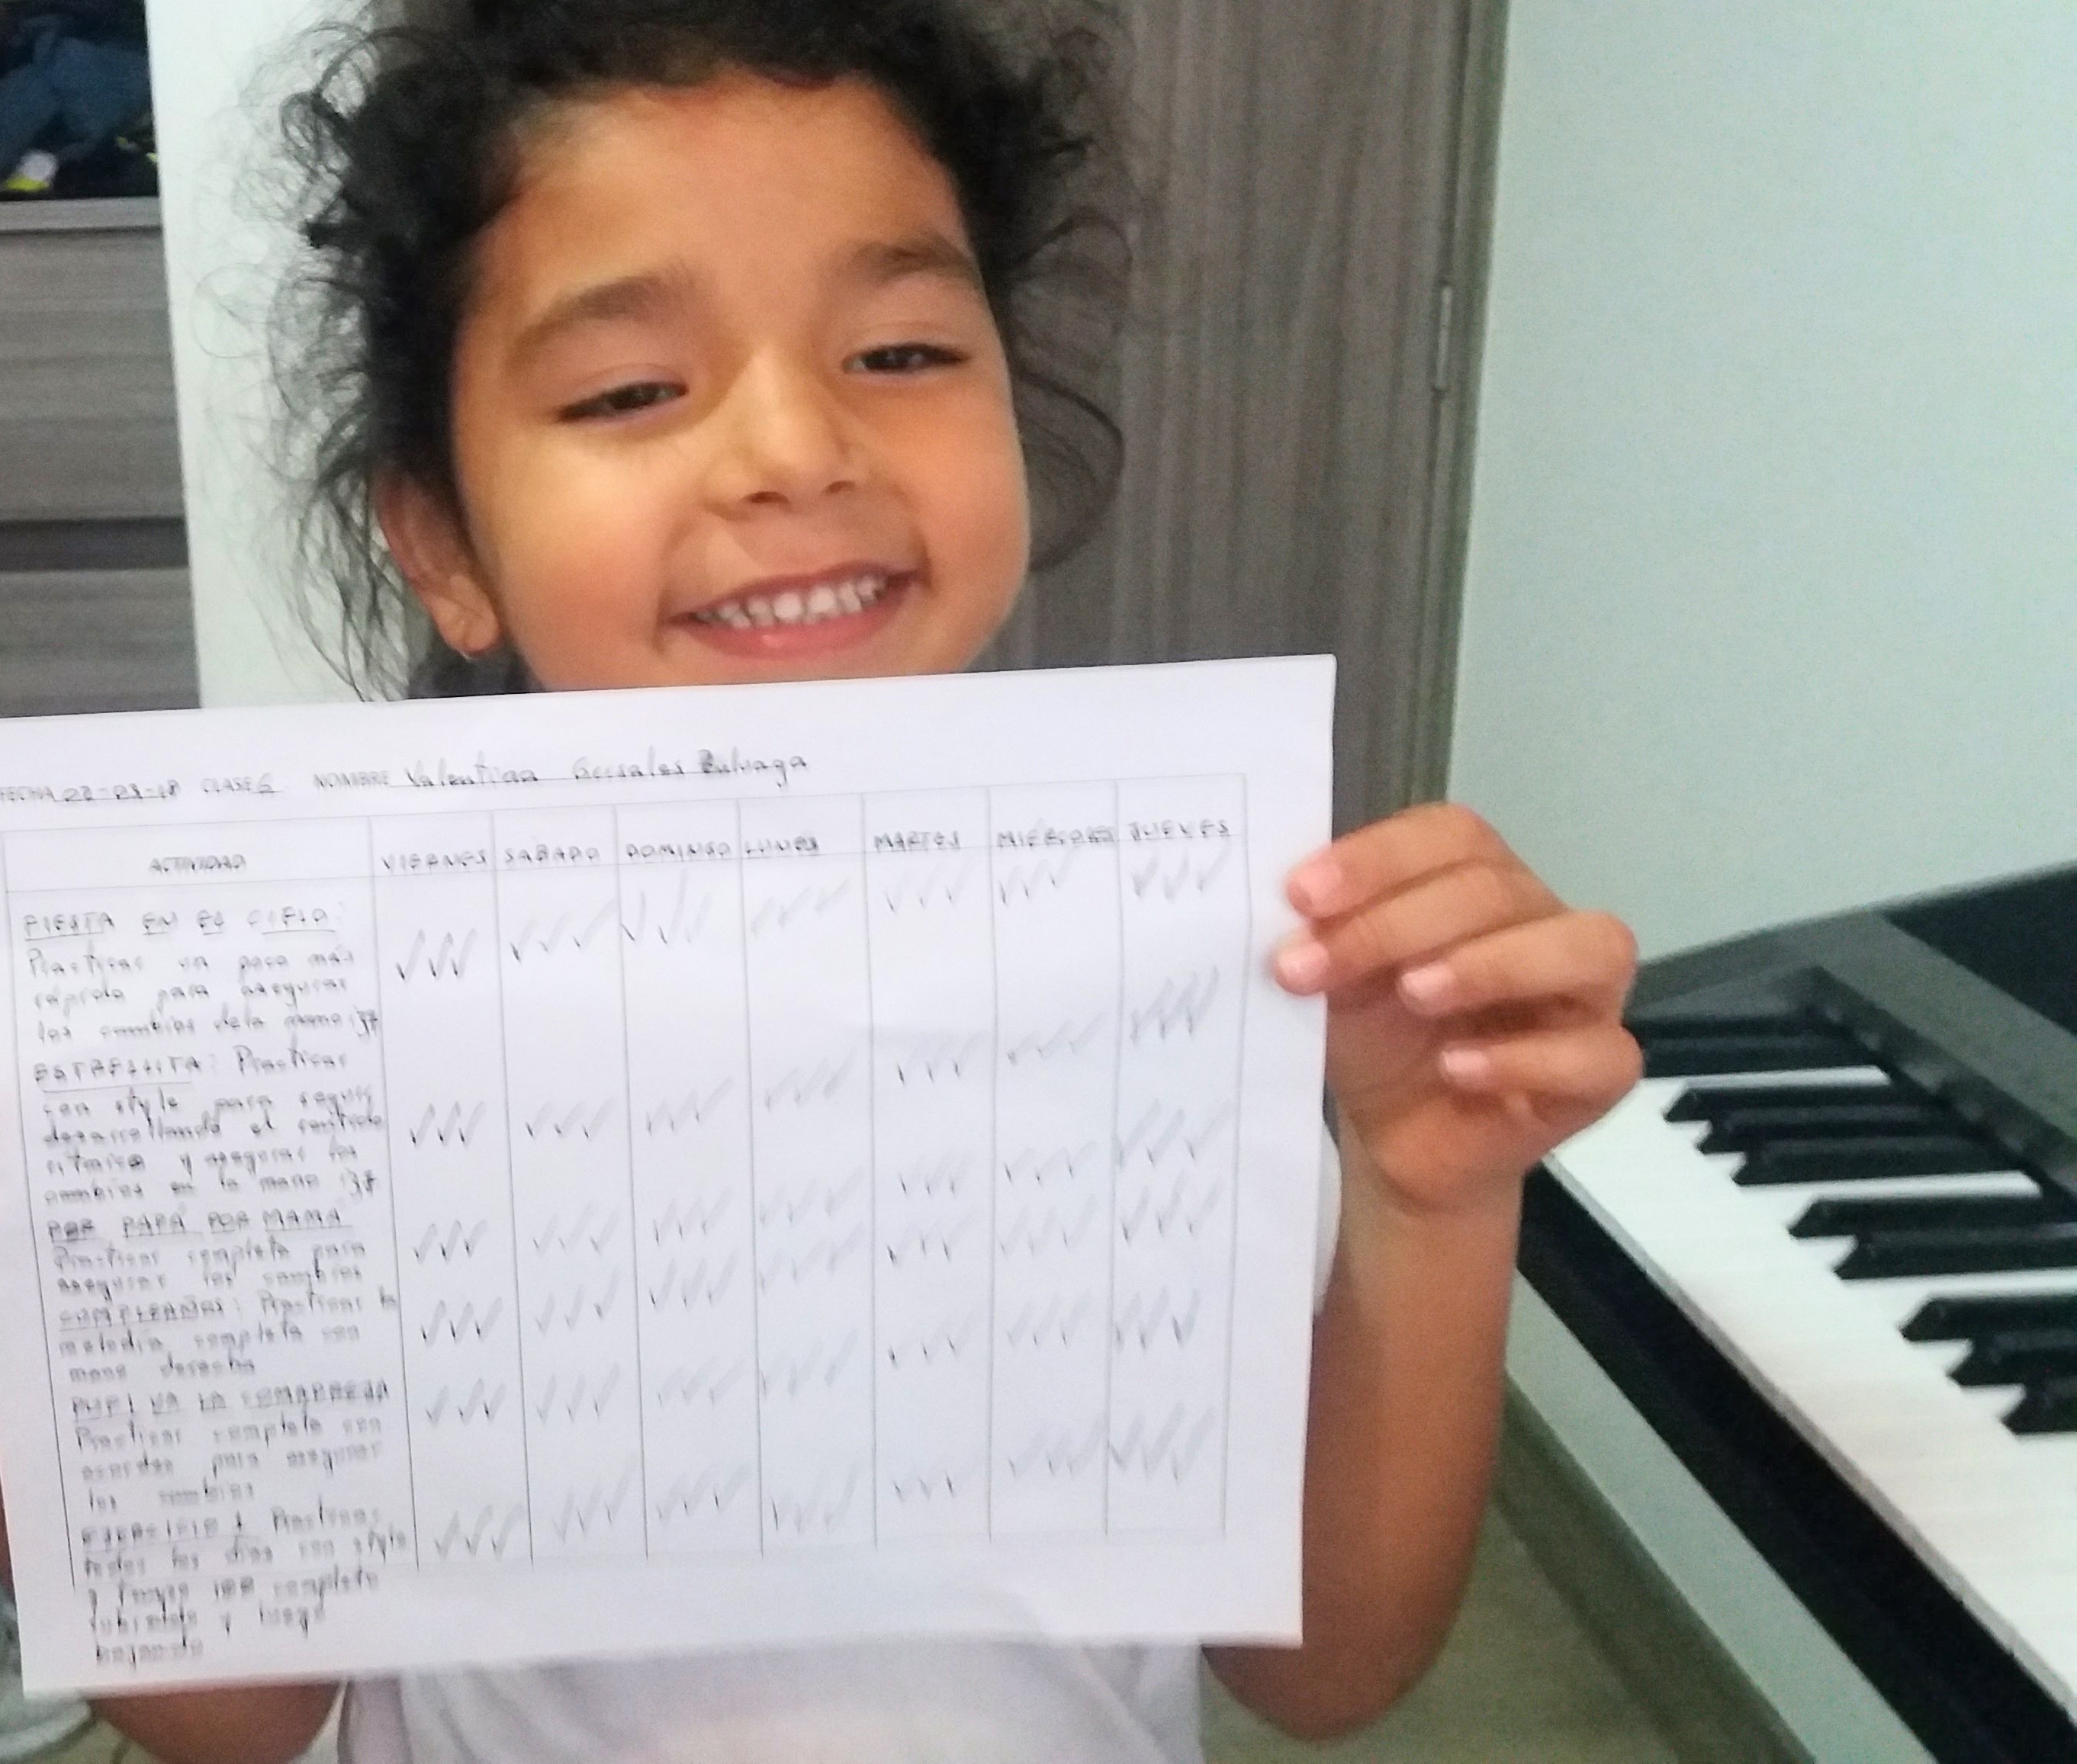 FECHA 02-03-18 CLASE 6 NOMBRE Valentina Zuluaga
ACTIVIDAD VIERNES SABADO DOMINGO LUNES MARTES MIÉRCOLES JUEVES
FIESTA EN EL CIELO:
Practicar un poco más
rápido para asegurar
los cambios de la mano izq
ESTRELLITA: Practicar
con style para seguir
desarrollando el sentido
rítmico y asegurar los
cambios en la mano izq
POR PAPÁ POR MAMÁ
Practicar completa para
asegurar los cambios
CUMPLEAÑOS: Practicar la
melodía completa con
mano derecha
PUFI VA LA COMADREJA
Practicar completa con
acordes para asegurar
los cambios
EJERCICIO 1 Practicar
todos los días con style
y tempo 100 completo
subiendo y luego
bajando